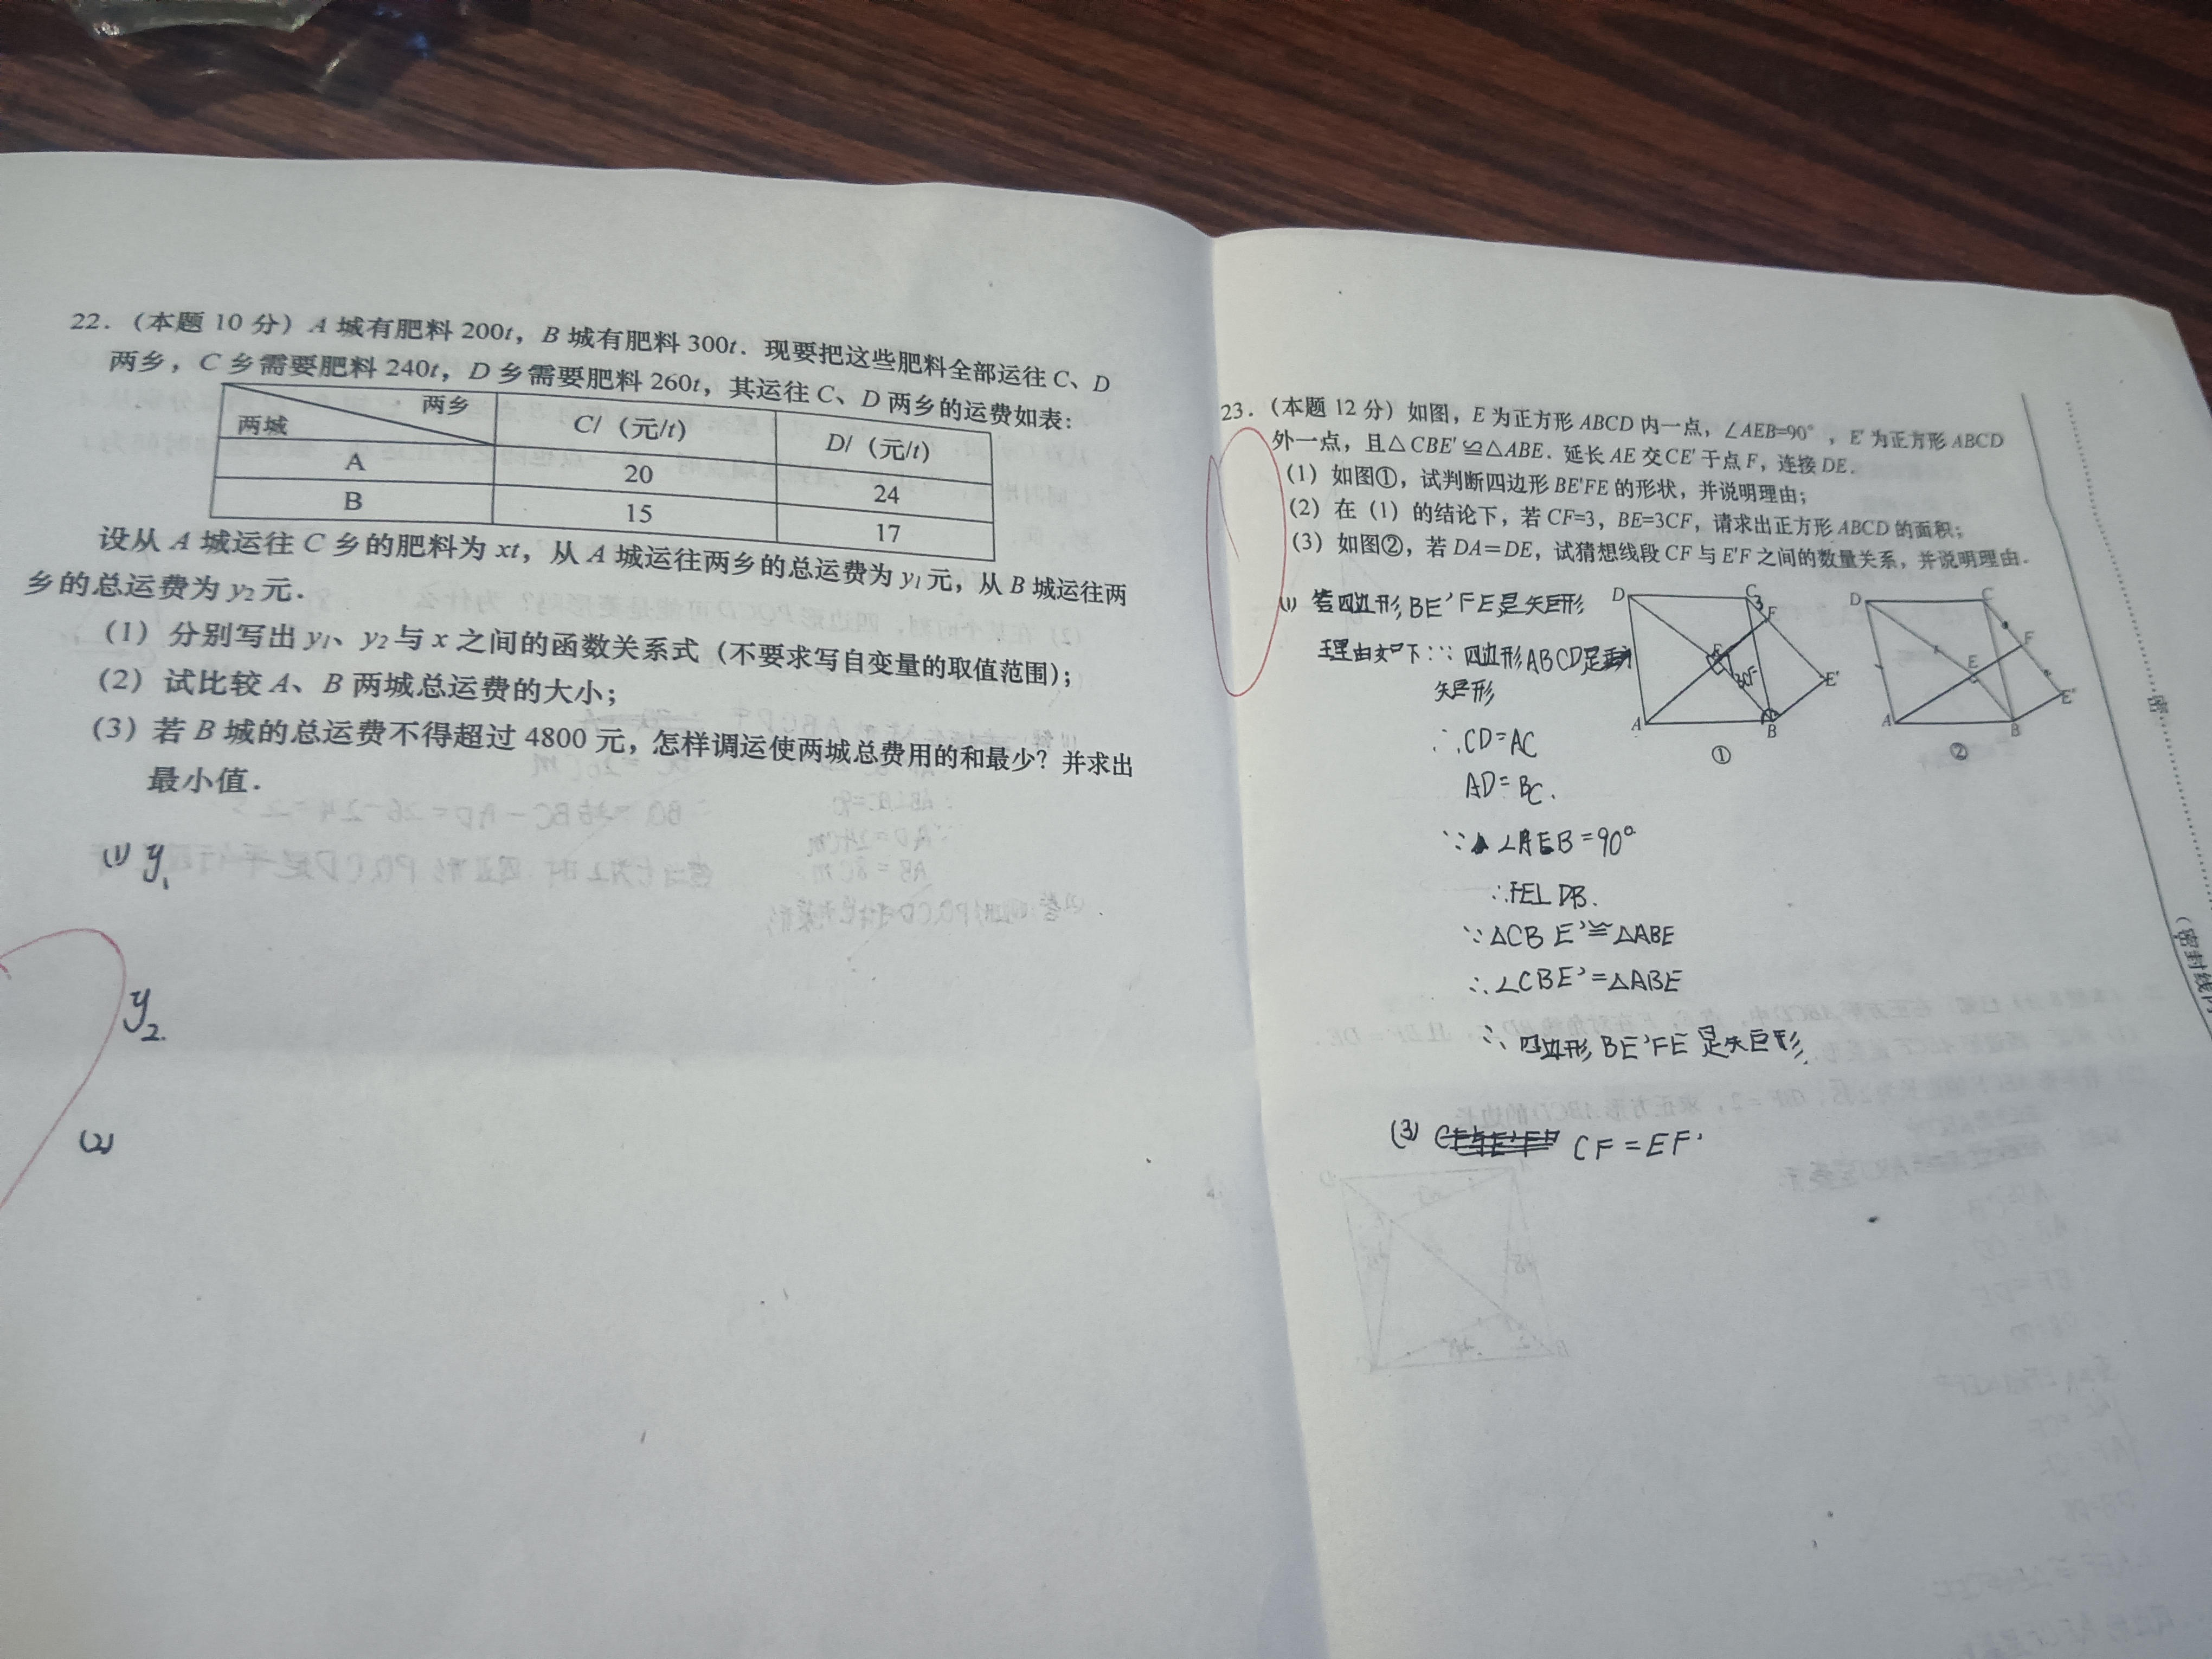 22. （本题 10 分）A 城有肥料 200t，B 城有肥料 300t．现要把这些肥料全部运往 C、D
两乡，C 乡需要肥料 240t，D 乡需要肥料 260t，其运往 C、D 两乡的运费如表：
两乡
两城
C/（元/t）
D/（元/t）
A
20
24
B
15
17
设从 A 城运往 C 乡的肥料为 xt，从 A 城运往两乡的总运费为 y₁ 元，从 B 城运往两
乡的总运费为 y₂ 元．
（1）分别写出 y₁、y₂ 与 x 之间的函数关系式（不要求写自变量的取值范围）；
（2）试比较 A、B 两城总运费的大小；
（3）若 B 城的总运费不得超过 4800 元，怎样调运使两城总费用的和最少？并求出
最小值．
(1) y₁
y₂.
(2)
23. （本题 12 分）如图，E 为正方形 ABCD 内一点，∠AEB=90°，E′ 为正方形 ABCD
外一点，且△CBE′≌△ABE．延长 AE 交 CE′ 于点 F，连接 DE．
（1）如图①，试判断四边形 BE′FE 的形状，并说明理由；
（2）在（1）的结论下，若 CF=3，BE=3CF，请求出正方形 ABCD 的面积；
（3）如图②，若 DA＝DE，试猜想线段 CF 与 E′F 之间的数量关系，并说明理由．
(1) 答四边形 BE′FE是矩形
理由如下：∵ 四边形ABCD是
矩形
∴CD=AC
AD=BC.
∵∠AEB=90°
∴FE⊥DB.
∵△CBE′≌△ABE
∴∠CBE′=△ABE
∴四边形 BE′FE 是矩形.
(3) CF=EF′
D
C
3
F
E
3CF
E′
A
B
①
D
C
F
E
E′
A
B
②
密
（密封线内